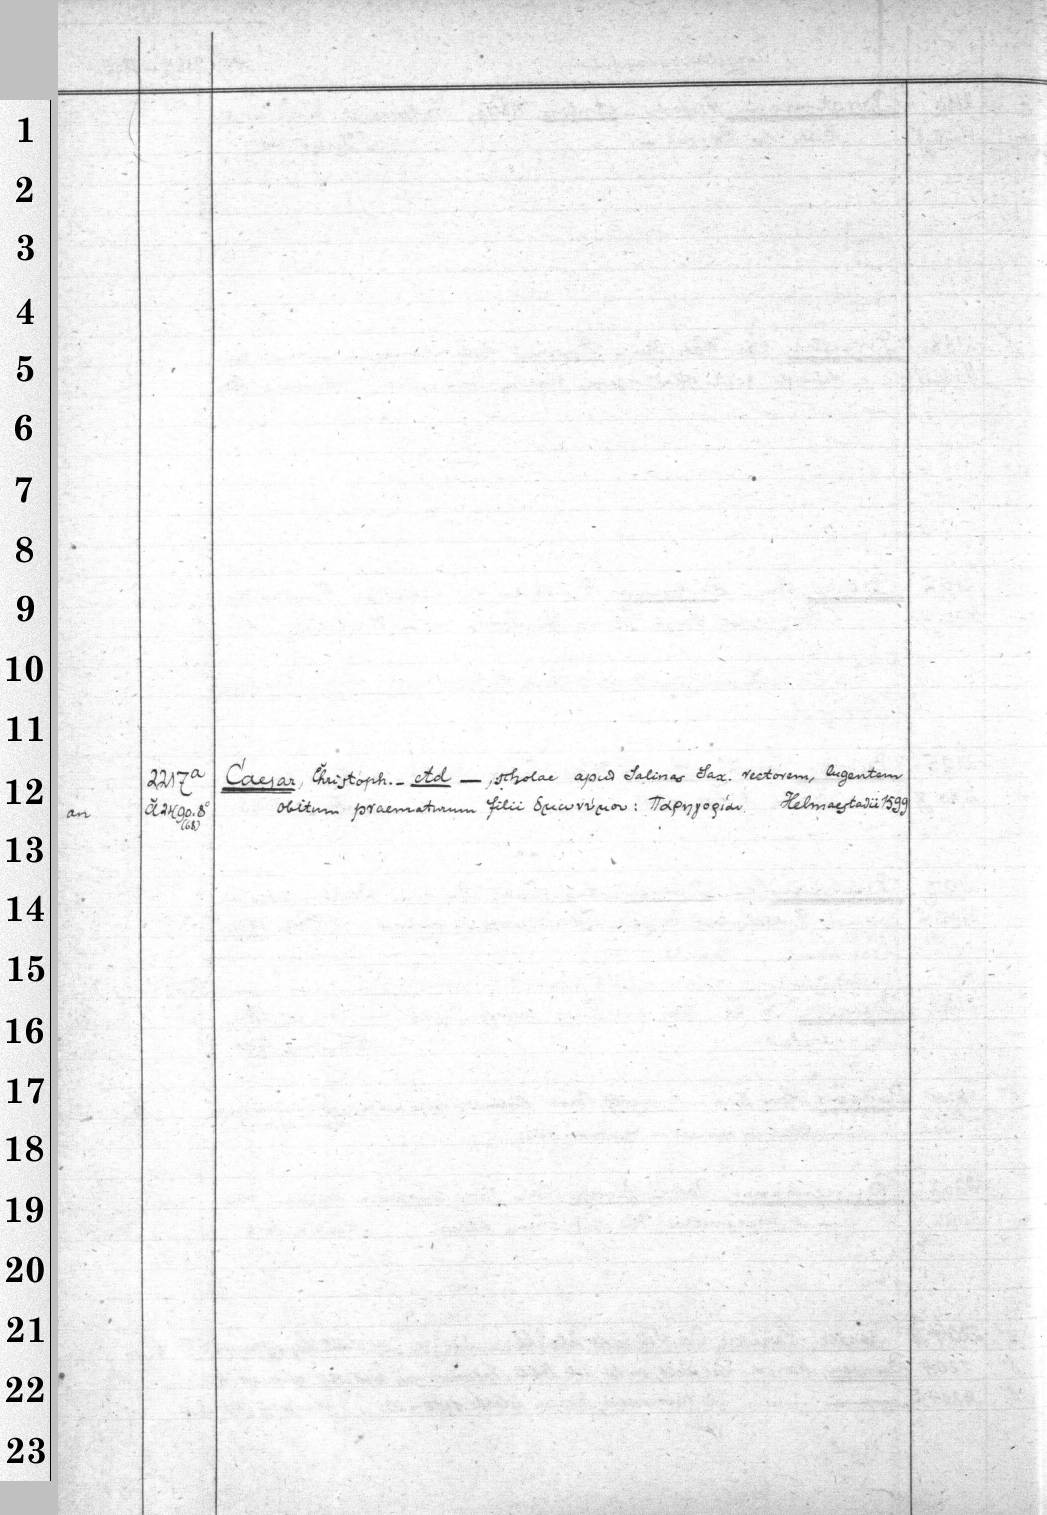 1
2
3
4
5
6
7
8
9
10
11
2217a Caesar, Christoph. - Ad —, scholae apud Salinas Sax. rectorem, lugentem
12
an Å 2490.8° obitum praematurum filii ὁμωνύμου: Παρηγορίαν. Helmaestadii 1599
(68)
13
14
15
16
17
18
19
20
21
22
23